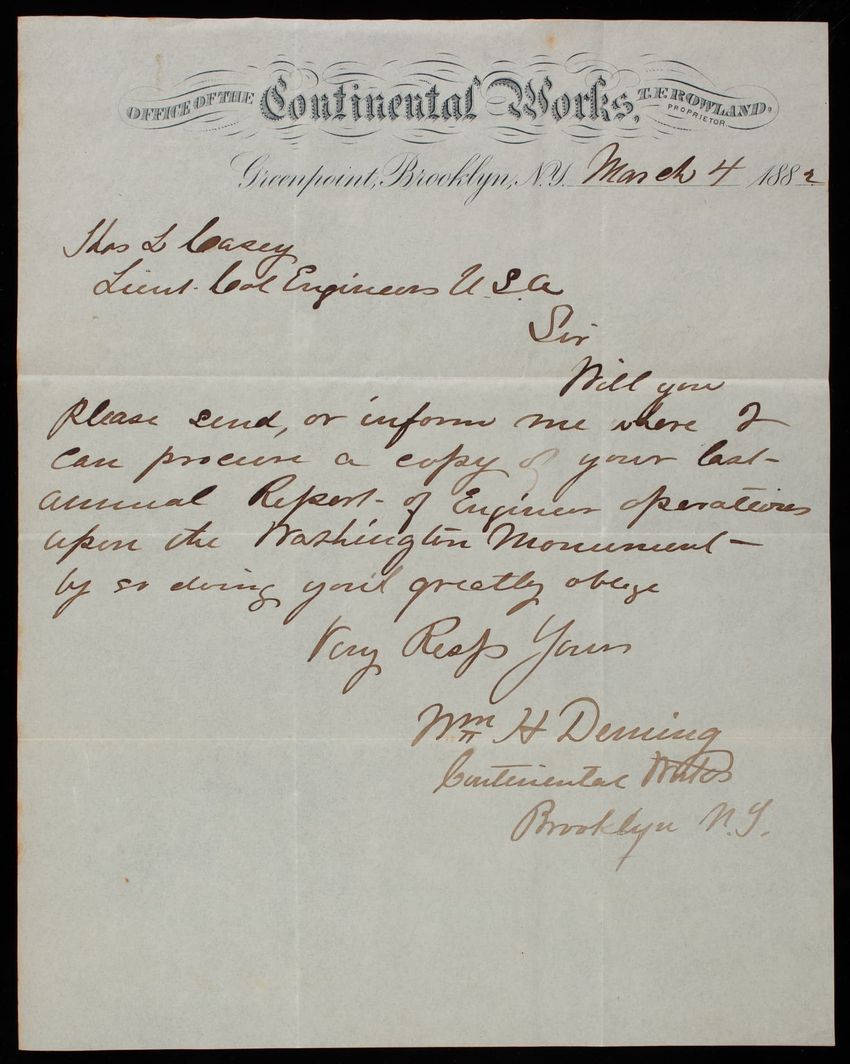 OFFICE OF THE Continental Works, T. F. ROWLAND.
PROPRIETOR
Greenpoint, Brooklyn, N.Y. March 4 1882
Thos L Casey
Lieut. Col Engineers U.S.A
Sir
Will you
please send, or inform me where I
can procure a copy of your last
annual Report of Engineer operations
upon the Washington Monument
by so doing you'l greatly oblige
Very Resp Yours
Wm H Deming
Continental Works
Brooklyn N.Y.